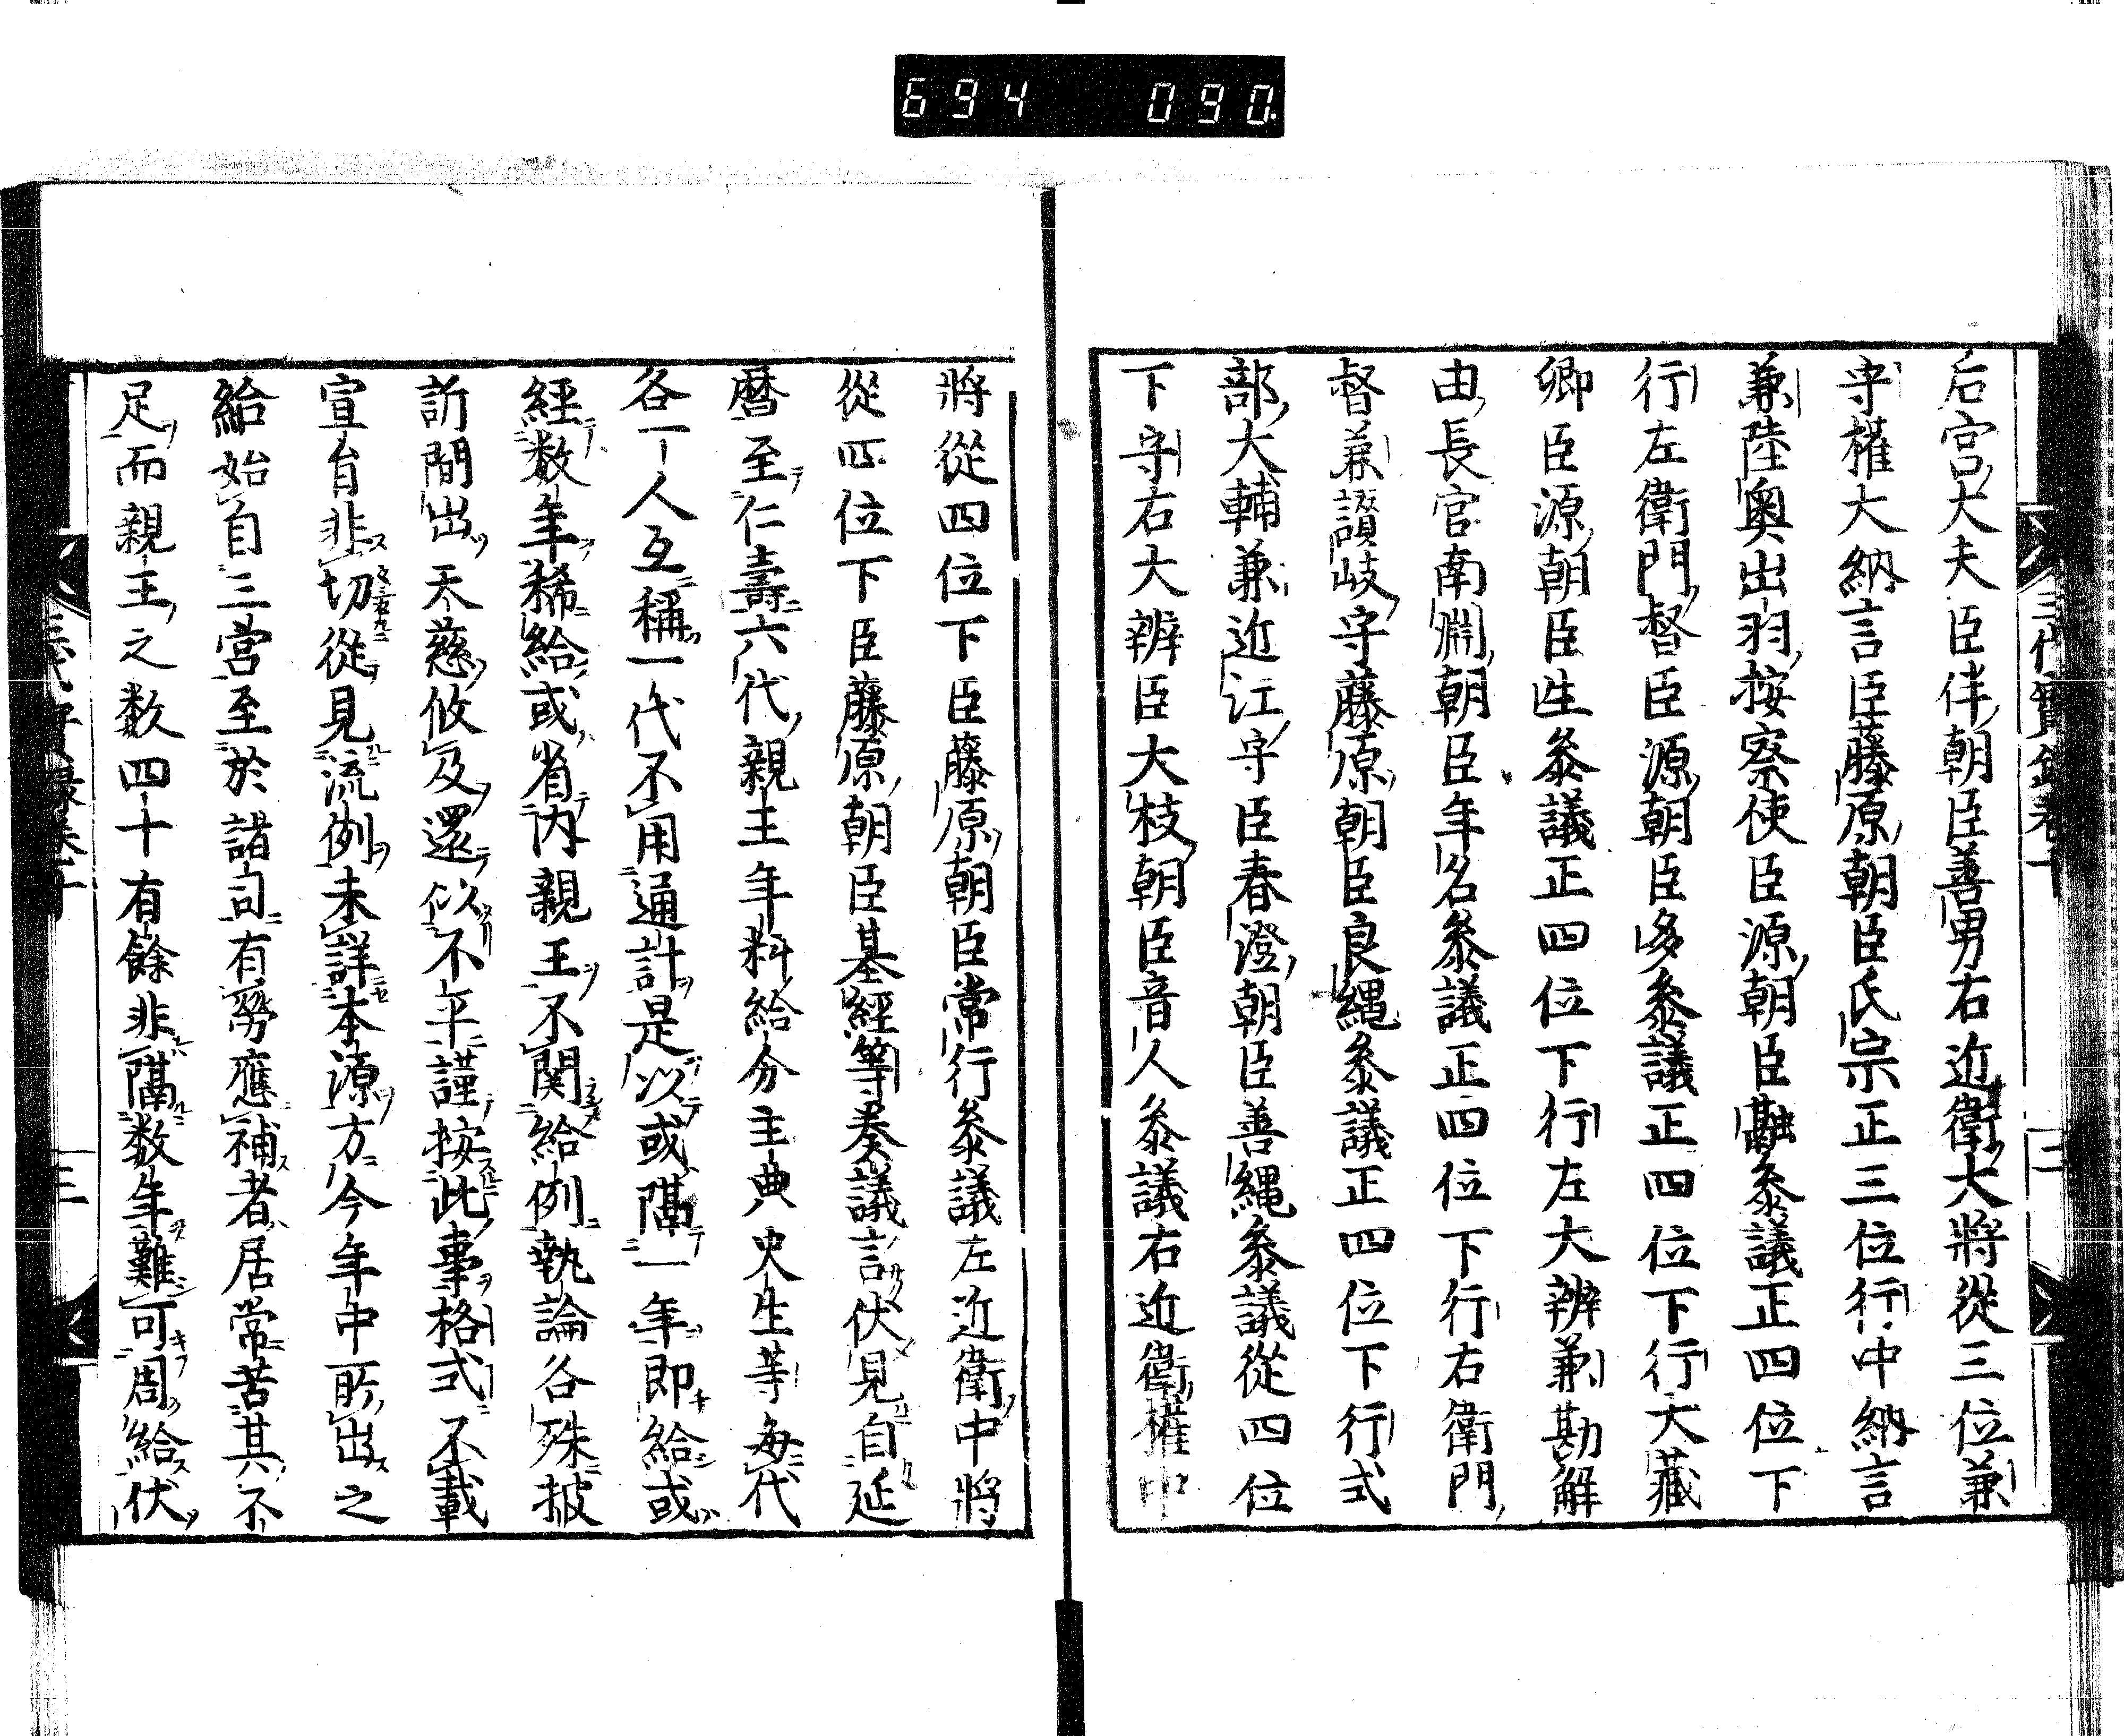 694 090
三代實錄卷十
二
后宮大夫臣伴朝臣善男右近衛大將從三位兼
守權大納言臣藤原朝臣氏宗正三位行中納言
兼陸奧出羽按察使臣源朝臣融參議正四位下
行左衛門督臣源朝臣多參議正四位下行大藏
卿臣源朝臣生參議正四位下行左大辨兼勘解
由長官南淵朝臣年名參議正四位下行右衛門
督兼讃岐守藤原朝臣良繩參議正四位下行式
部大輔兼近江守臣春澄朝臣善繩參議從四位
下守右大辨臣大枝朝臣音人參議右近衛權中
將從四位下臣藤原朝臣常行參議左近衛中將
從四位下臣藤原朝臣基經等奏議言伏見自延
曆至仁壽六代親王年料給分主典史生等每代
各一人互稱一代不用通計是以或隔一年即給或
經数年稀給或省內親王不関給例執論各殊披
訴間出天慈攸及還似不平謹按此事格式不載
宣旨非切從見流例未詳本源方今年中所出之
給始自三宮至於諸司有勞應補者居常苦其不
足而親王之数四十有餘非隔数年難可周給伏
三